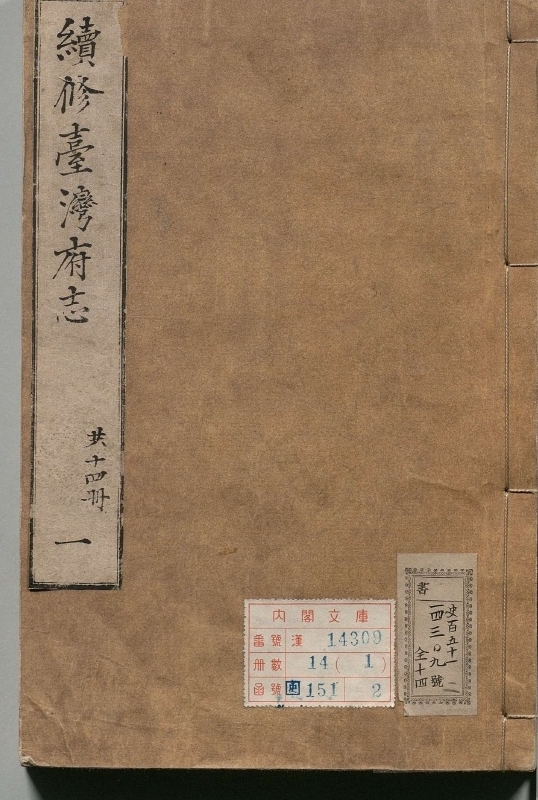 續修臺灣府志
共十四冊
一
內閣文庫
番號 漢 14309
冊數 14(1)
函號 史 151 2
書
史百五十一
一四三〇九號
全十四